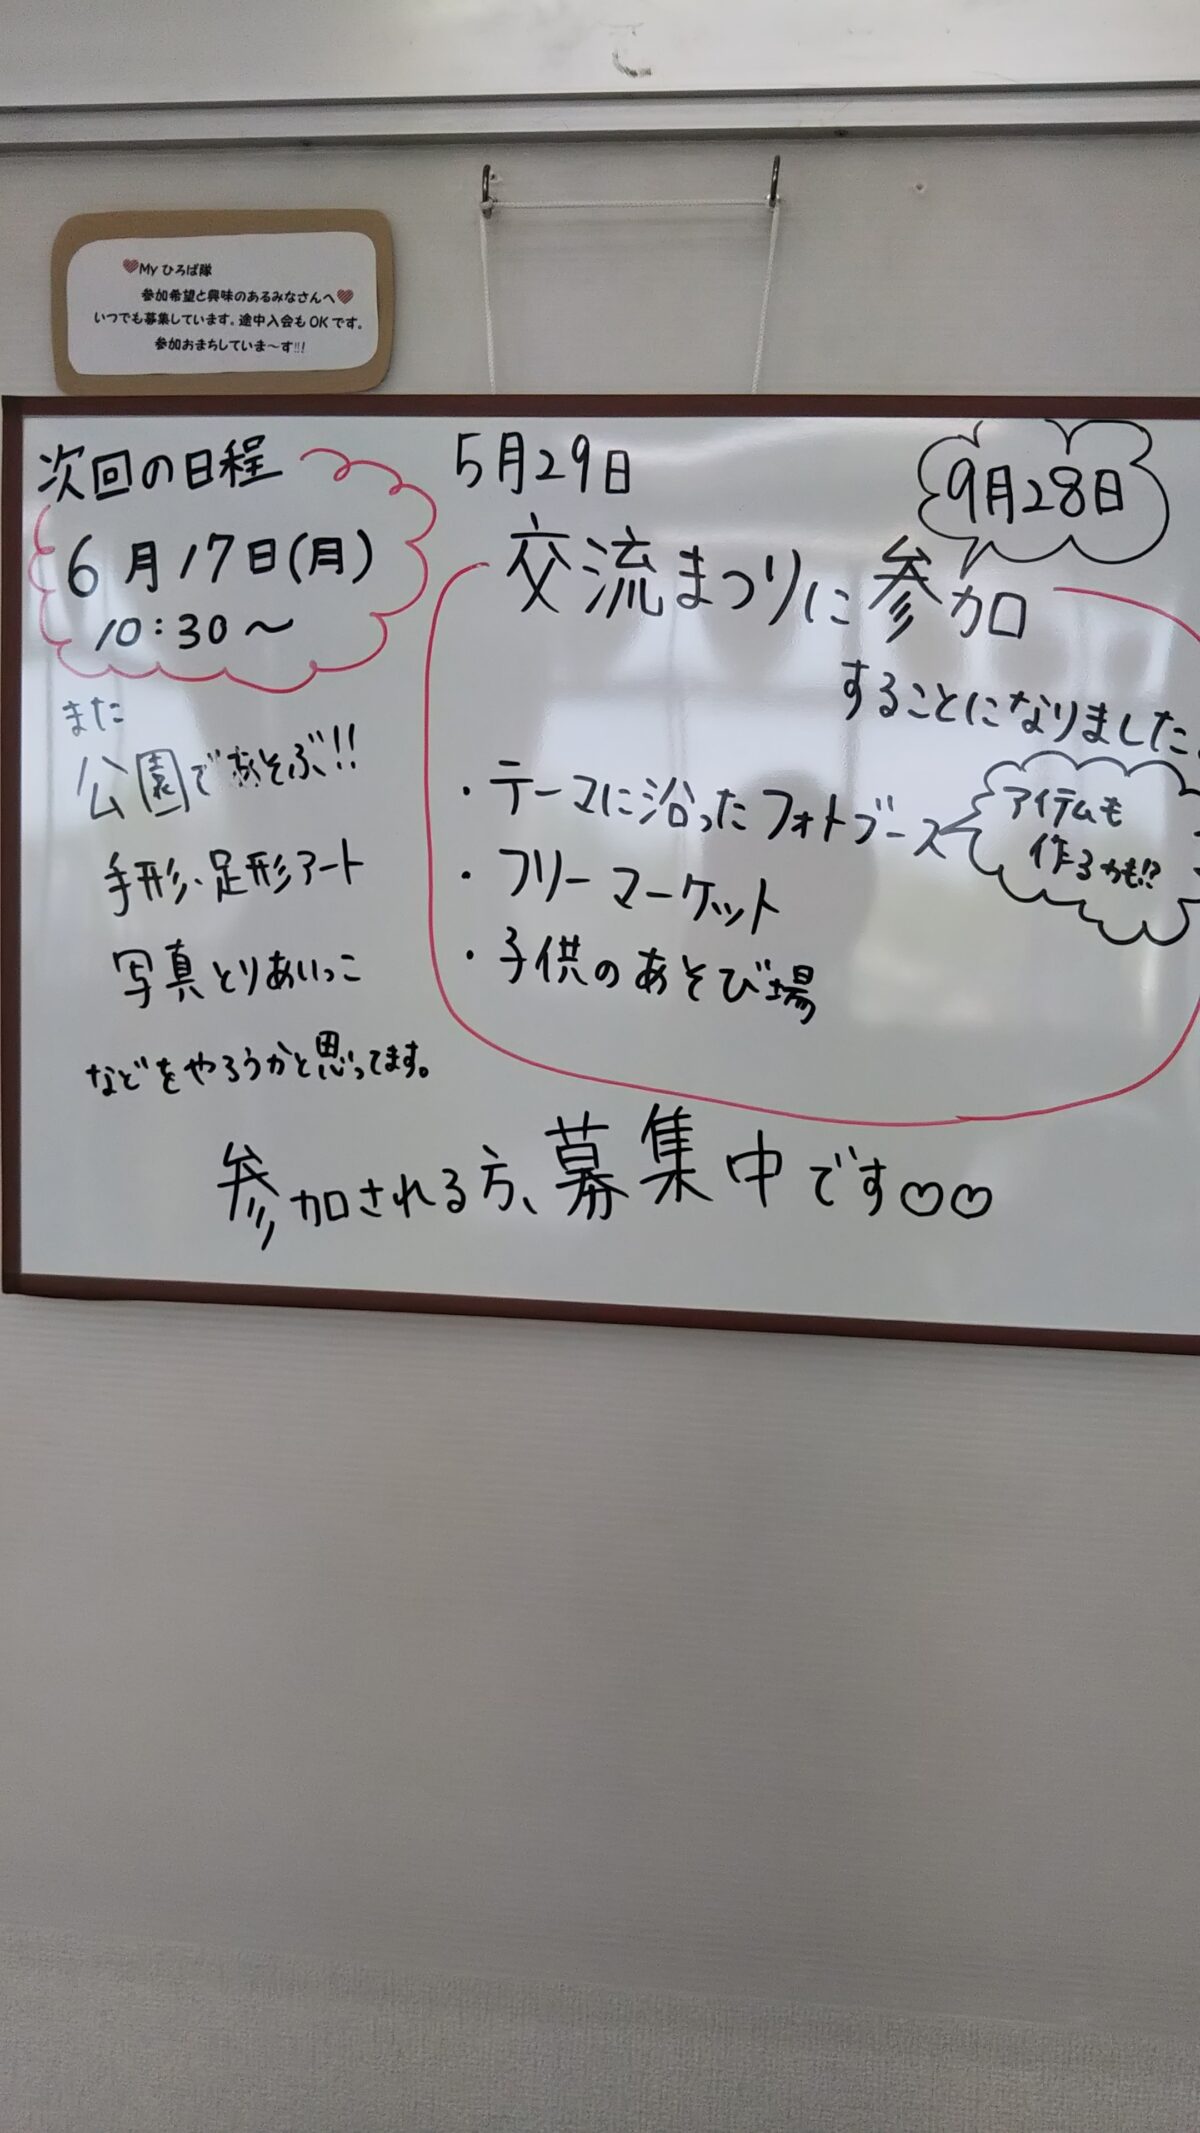 ♥Myひろば隊
参加希望と興味のあるみなさんへ♥
いつでも募集しています。途中入会もOKです。
参加おまちしていま～す!!!
次回の日程
6月17日(月)
10:30～
また
公園であそぶ!!
手形、足形アート
写真とりあいっこ
などをやろうかと思ってます。
5月29日
9月28日
交流まつりに参加
することになりました
・テーマに沿ったフォトブース
アイテムも
作るかも!?
・フリーマーケット
・子供のあそび場
参加される方、募集中です♡♡